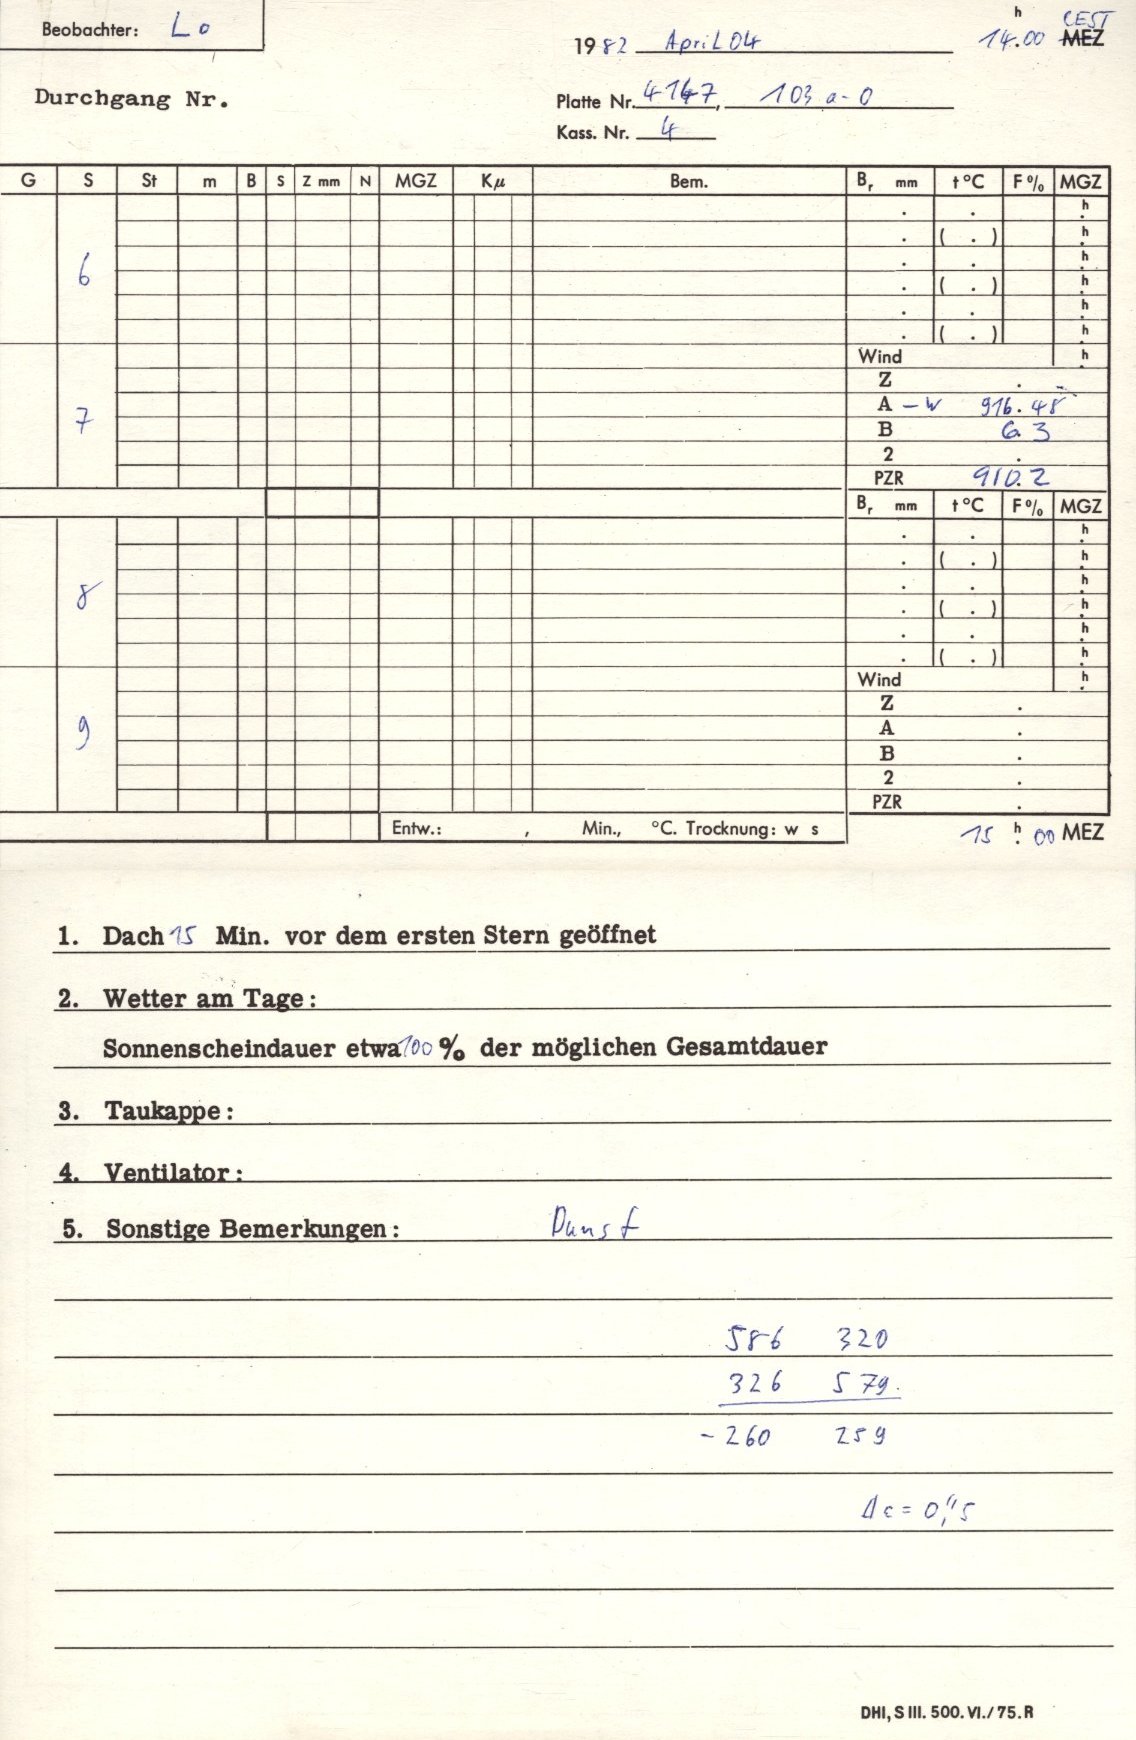 Beobachter: Lo
1982 April 04 14.00 h CEST MEZ
Durchgang Nr.
Platte Nr. 4147, 103 a-0
Kass. Nr. 4
G S St m B S Z mm N MGZ Kµ Bem. Br mm t °C F % MGZ
. . h
. ( . ) h
6 . . h
. ( . ) h
. . h
. ( . ) h
Wind h
Z .
7 A - W 916.48
B 6.3
2 .
PZR 910.2
Br mm t °C F % MGZ
. . h
. ( . ) h
. . h
8 . ( . ) h
. . h
. ( . ) h
Wind h
Z .
9 A .
B .
2 .
PZR .
Entw.: , Min., °C. Trocknung: w s 15 h 00 MEZ
1. Dach 15 Min. vor dem ersten Stern geöffnet
2. Wetter am Tage:
Sonnenscheindauer etwa 100 % der möglichen Gesamtdauer
3. Taukappe:
4. Ventilator:
5. Sonstige Bemerkungen: Dunst
586 320
326 579.
-260 259
Δc = 0",5
DHI, S III. 500. VI./75. R